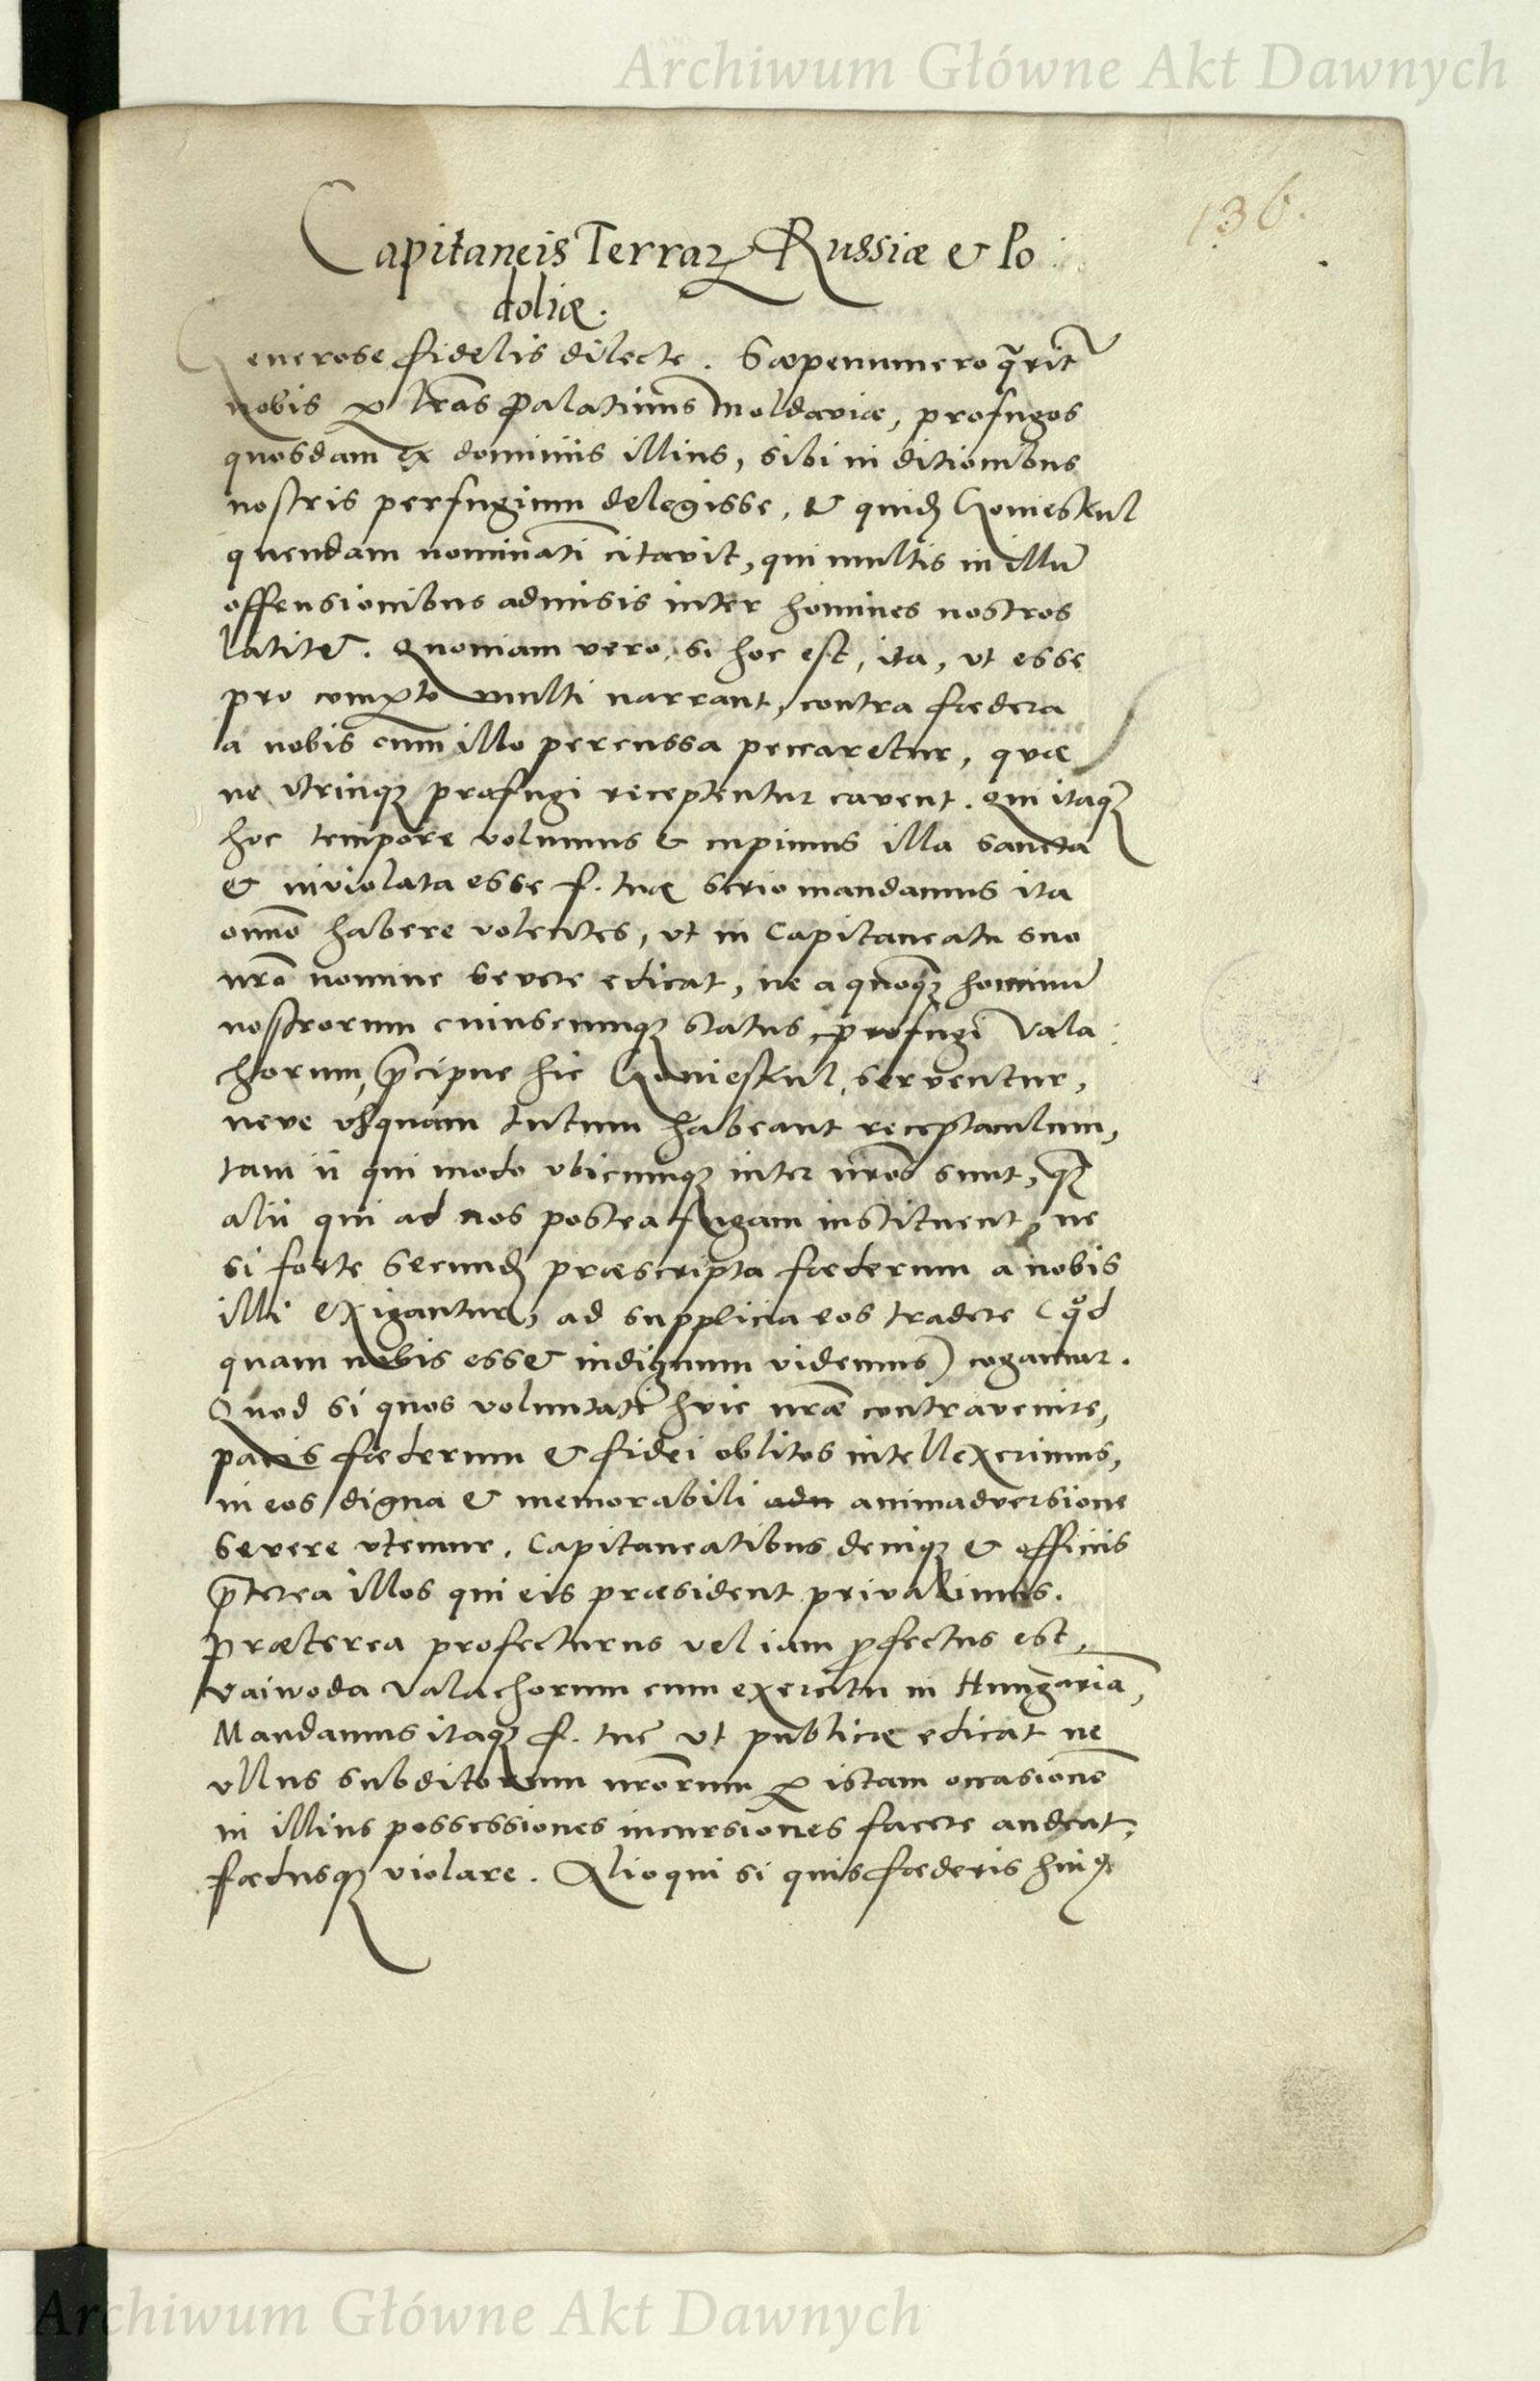 Archiwum Główne Akt Dawnych
136.
Capitaneis Terraꝝ Russiæ & Po
doliæ.
Generose fidelis dilecte. Sæpenumero q̃rit᷑
nobis ꝑ lr̃as Palatinus Moldaviæ, profugos
quosdam ex dominiis illius, sibi in ditionibus
nostris perfugium delegisse, & quidẽ
quendam nominatĩ citavit, qui multis in illũ
offensionibus admisis inter homines nostros
latitet. Quoniam vero, si hoc est, ita, vt esse
pro comꝑto multi narrant, contra fœdera
a nobis cum illo percussa peccaretur, quæ
ne vtrinqꝫ profugi receptentur cavent. Qui itaqꝫ
hoc tempore volumus & cupimus illa sancta
& inviolata esse f. tuæ serio mandamus ita
omño habere volentes, vt in Capitaneatu suo
nr̃o nomine severe edicat, ne a quoqꝫ hominũ
nostrorum cuiuscunqꝫ status, profugi Vala
chorum, p̃cipue hic serventur,
neve vsquam tutum habeant receptaculum,
tam ii qui modo vbicunqꝫ inter nr̃os sunt, qꝫ
alii qui ad nos postea fugam instituent, ne
si forte secundũ præscripta fœderum a nobis
illi exigantur, ad supplicia eos tradere (qd
quam nobis esset indignum videmus) cogamur.
Quod si quos voluntati huic nr̃æ contravenire,
pacis fœderum & fidei oblitos intellexerimus,
in eos digna & memorabili adu animadversione
severe vtemur, Capitaneatibus deniqꝫ & officiis
p̃terea illos qui eis præsident privabimus.
Præterea profecturus vel iam ꝓfectus est,
vaiwoda Valachorum cum exercitu in Hungariã,
Mandamus itaqꝫ f. tuæ vt publice edicat ne
vllus subditorum nr̃orum ꝑ istam occasionẽ
in illius possessiones incursiones facere audeat,
fœdusqꝫ violare. Alioqui si quis fœderis huiꝰ
Archiwum Główne Akt Dawnych